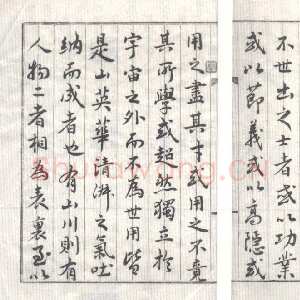 不世出之士者或以功業
或以節義或以高隱或
用之盡其才或用之不竟
其所學或超然獨立於
宇宙之外而不爲世用皆
是山英華清淑之氣吐
納而成者也有山川則有
人物二者相爲表裏至以